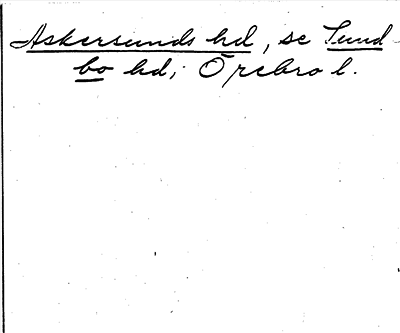 Askersunds hd, se Sund
bo hd; Örebro l.